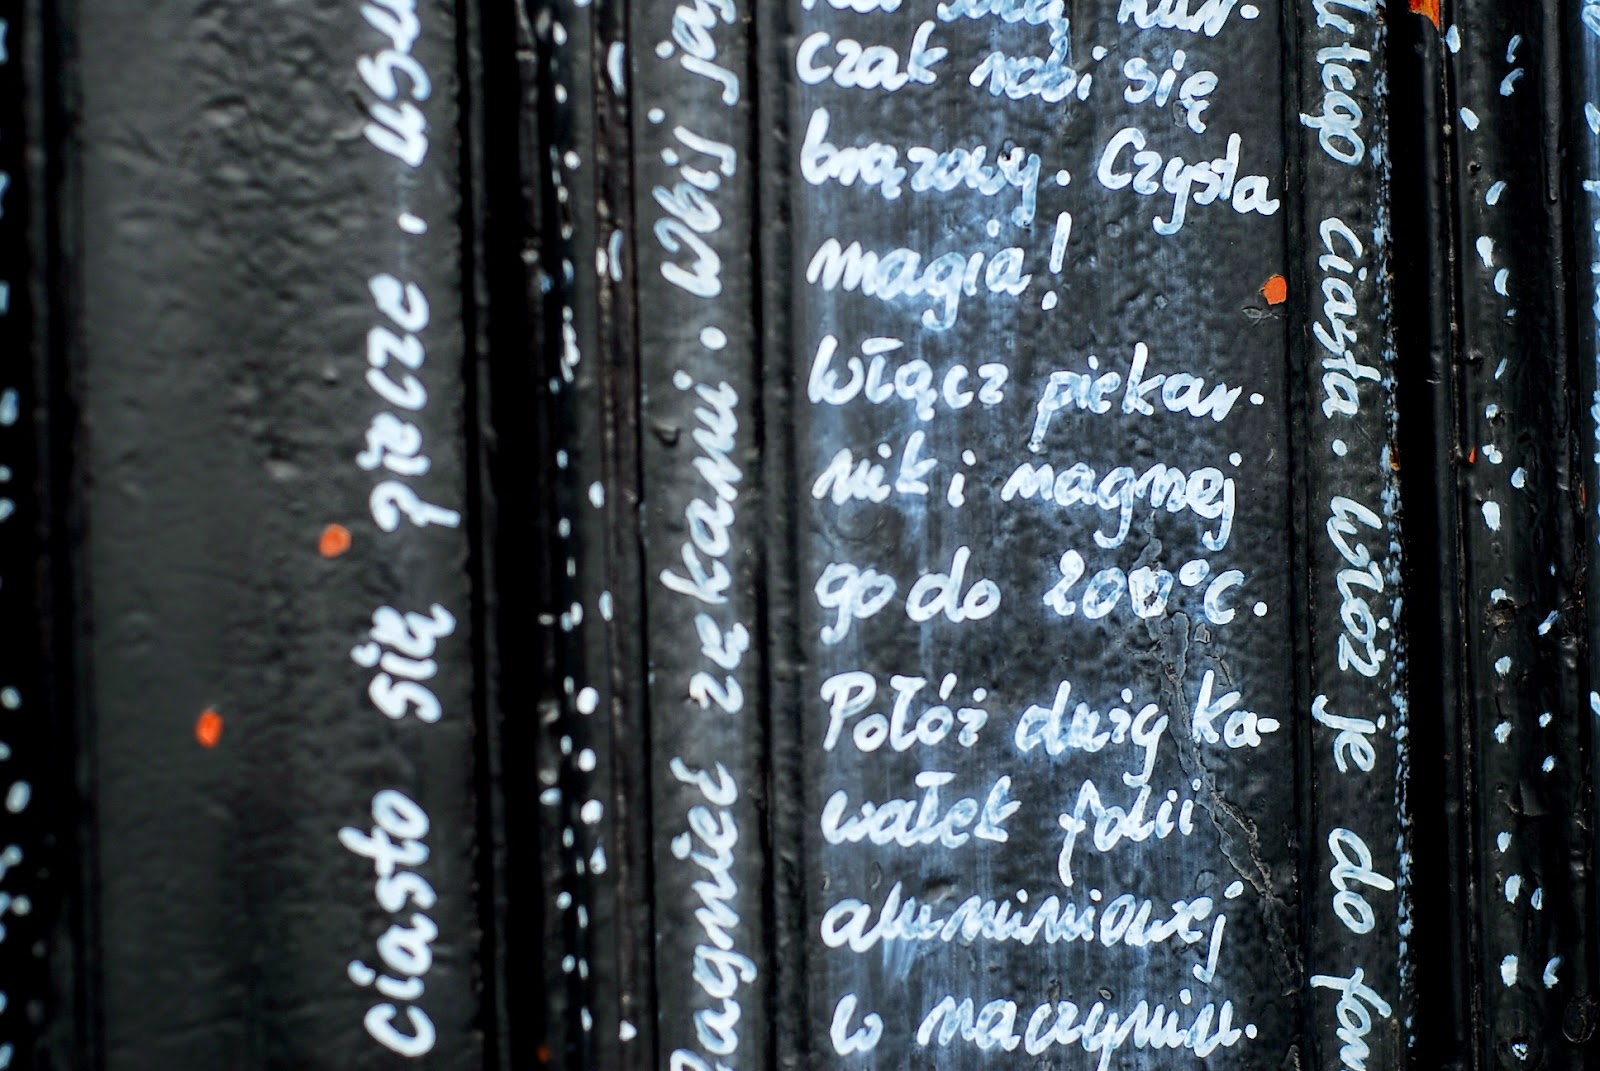 ciasto się piecze,
Zagnieć rękami. Wbij
kur-
czak robi się
brązowy. Czysta
magia!
Włącz piekar-
nik i nagrzej
go do 200°C.
Połóż duży ka-
wałek folii
aluminiowej
w naczyniu.
ciasta. Włóż je do